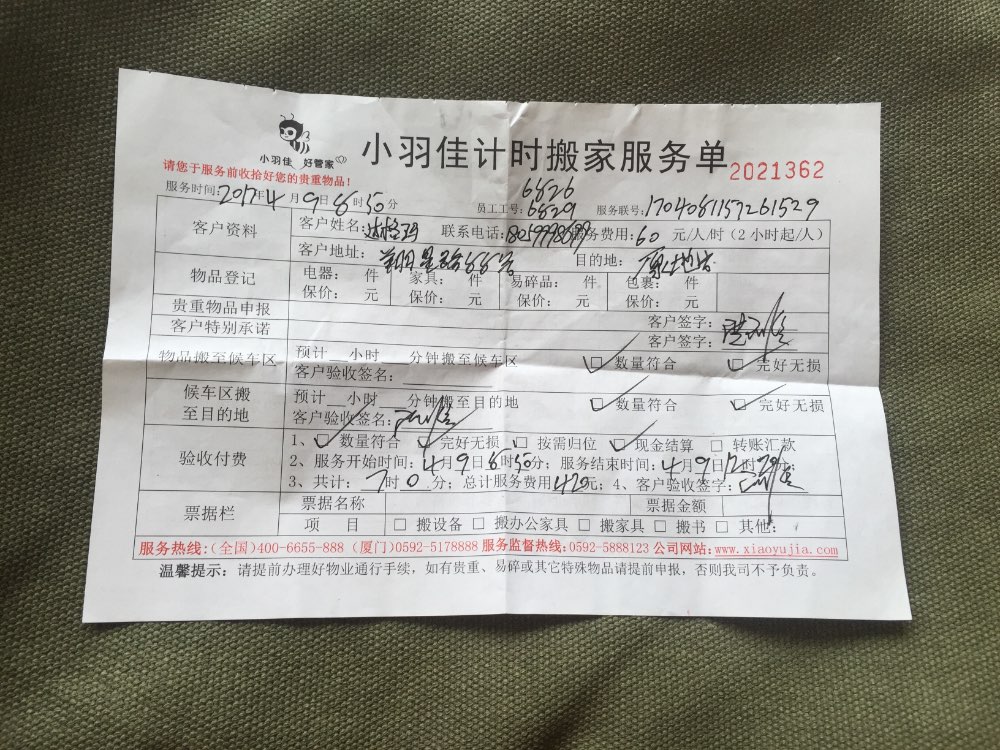 小羽佳 好管家
小羽佳计时搬家服务单
2021362
请您于服务前收拾好您的贵重物品!
服务时间:2017年4月9日8时50分 员工工号:6826 6829 服务联号:1704081157261529
客户资料 客户姓名: 联系电话: 服务费用:60元/人/时(2小时起/人)
客户地址: 目的地:
物品登记 电器: 件 家具: 件 易碎品: 件 包裹: 件
保价: 元 保价: 元 保价: 元 保价: 元
贵重物品申报 客户签字:
客户特别承诺 客户签字:
物品搬至候车区 预计__小时 分钟搬至候车区 数量符合 完好无损
客户验收签名:
候车区搬至目的地 预计__小时 分钟搬至目的地 数量符合 完好无损
客户验收签名:
验收付费 1、 数量符合 完好无损 按需归位 现金结算 转账汇款
2、服务开始时间:4月9日8时50分; 服务结束时间:4月9日12时20分;
3、共计:7时0分; 总计服务费用420元; 4、客户验收签字:
票据栏 票据名称 票据金额
项 目 搬设备 搬办公家具 搬家具 搬书 其他:
服务热线:(全国)400-6655-888 (厦门)0592-5178888 服务监督热线:0592-5888123 公司网站:www.xiaoyujia.com
温馨提示:请提前办理好物业通行手续,如有贵重、易碎或其它特殊物品请提前申报,否则我司不予负责。